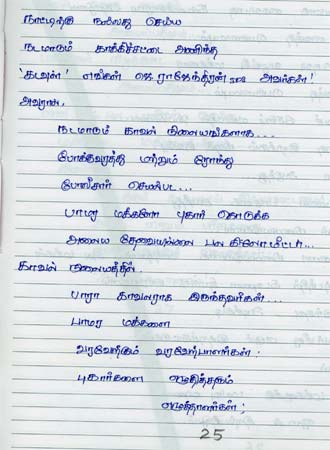 நாட்டிற்கு நல்லது செய்ய
நடமாடும் காக்கிச்சட்டை அணிந்த
'கடவுள்' எங்கள் ஜெ.ராஜேந்திரன் அவர்கள்!
அவரால்,
நடமாடும் காவல் நிலையங்களாக...
போக்குவரத்து மற்றும் ரோந்து
போலீசார் செயல்பட...
பாமர மக்களோ புகார் கொடுக்க
அலைய தேவையில்லை பல கிலோ மீட்டர்...
காவல் நிலையத்தில்.
பாரா காவலராக இருந்தவர்கள்...
பாமர மக்களை
வரவேற்கும் வரவேற்பாளர்கள்!
புகார்களை எழுதித்தரும்
எழுத்தாளர்கள்;
25